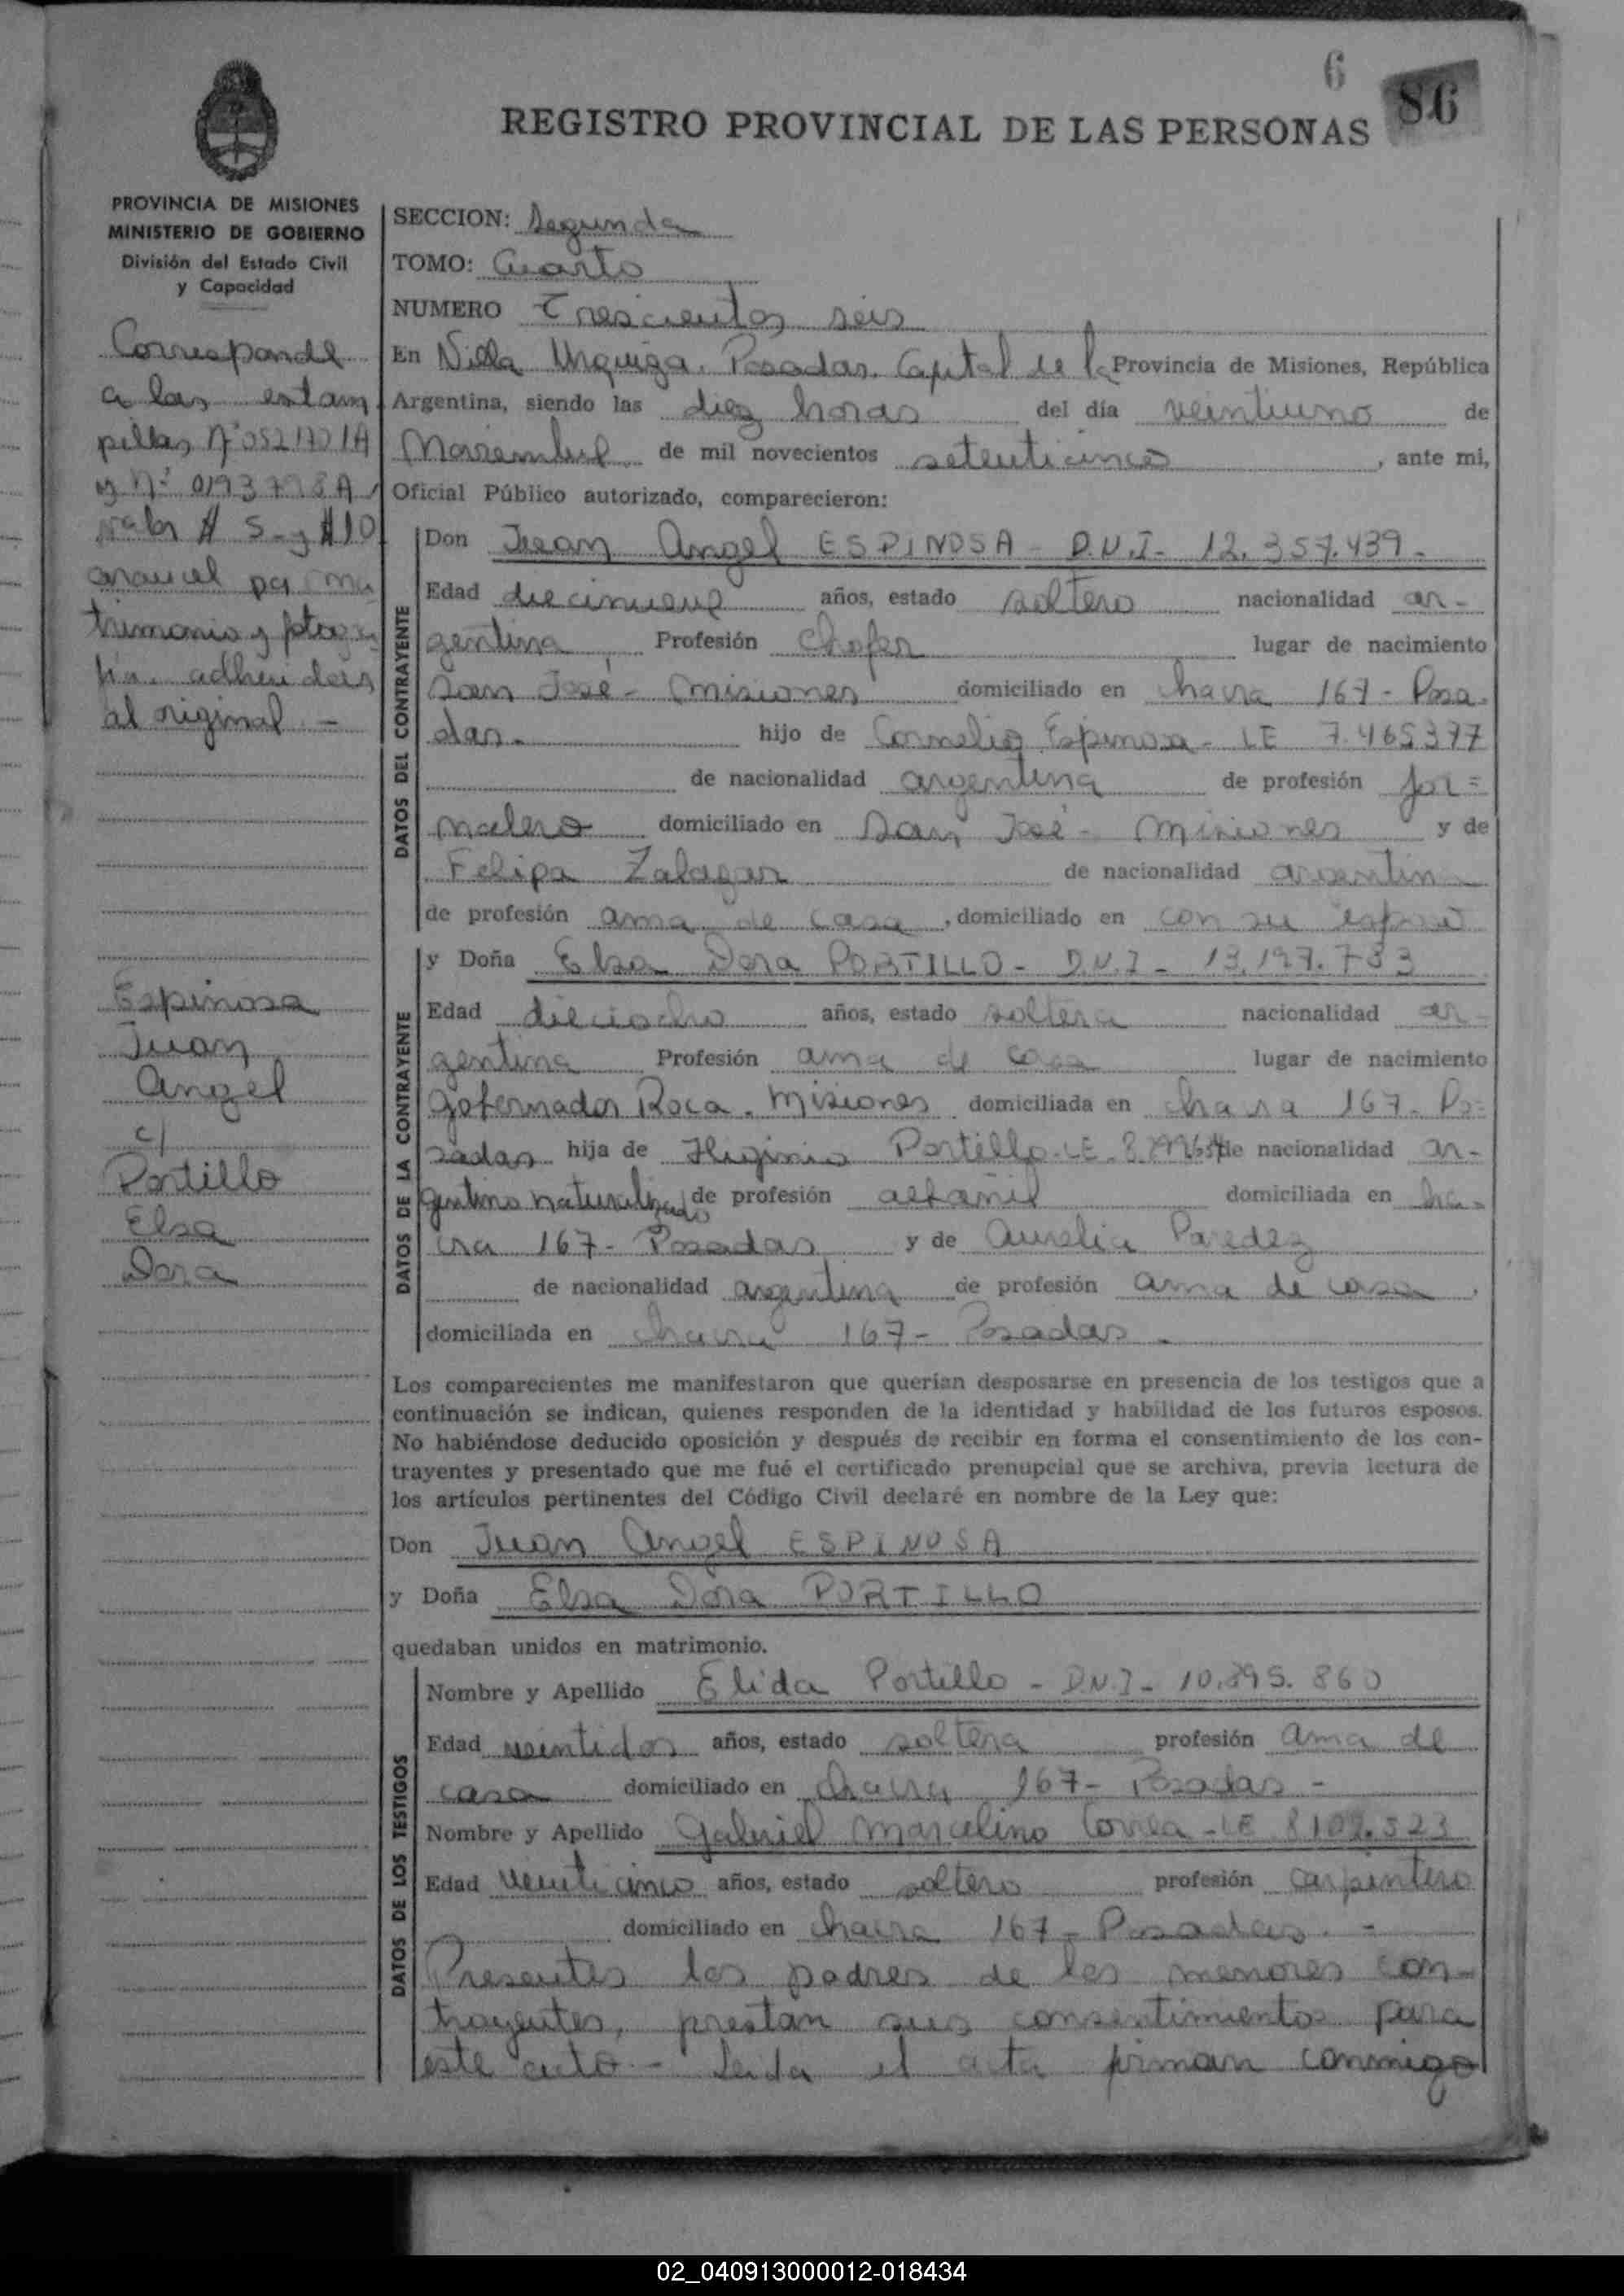 6
86
REGISTRO PROVINCIAL DE LAS PERSONAS
PROVINCIA DE MISIONES
MINISTERIO DE GOBIERNO
División del Estado Civil
y Capacidad
Corresponde
a las estam
pillas Nº 0521701A
y Nº 0193798A
valor $ 5.- y $10
arancel por ma
trimonio y fotogra
fía. adheridas
al original.-
Espinosa
Juan
Angel
c/
Portillo
Elsa
Dora
SECCION: Segunda
TOMO: Cuarto
NUMERO Trescientos seis
En Villa Urquiza. Posadas. Capital de la Provincia de Misiones, República
Argentina, siendo las diez horas del día veintiuno de
Noviembre de mil novecientos setenticinco, ante mi,
Oficial Público autorizado, comparecieron:
DATOS DEL CONTRAYENTE
Don Juan Angel ESPINOSA - D.N.I- 12.357.439-
Edad diecinueve años, estado soltero nacionalidad ar-
gentina Profesión Chofer lugar de nacimiento
San José - Misiones domiciliado en chacra 167 - Posa-
das. hijo de Cornelio Espinosa - LE 7.465377
de nacionalidad argentina de profesión jor=
nalero domiciliado en San José - Misiones y de
Felipa Zalazar de nacionalidad argentina
de profesión ama de casa, domiciliado en con su esposo
DATOS DE LA CONTRAYENTE
y Doña Elsa Dora PORTILLO - D.N.I - 13.197.783
Edad dieciocho años, estado soltera nacionalidad ar-
gentina Profesión ama de casa lugar de nacimiento
Gobernador Roca. Misiones domiciliada en chacra 167. Po=
sadas hija de Higinio Portillo - LE. de nacionalidad ar-
gentino naturalizado de profesión albañil domiciliada en cha-
cra 167- Posadas y de Aurelia Paredez
de nacionalidad argentina de profesión ama de casa,
domiciliada en chacra 167- Posadas.
Los comparecientes me manifestaron que querían desposarse en presencia de los testigos que a
continuación se indican, quienes responden de la identidad y habilidad de los futuros esposos.
No habiéndose deducido oposición y después de recibir en forma el consentimiento de los con-
trayentes y presentado que me fué el certificado prenupcial que se archiva, previa lectura de
los artículos pertinentes del Código Civil declaré en nombre de la Ley que:
Don Juan Angel ESPINOSA
y Doña Elsa Dora PORTILLO
quedaban unidos en matrimonio.
DATOS DE LOS TESTIGOS
Nombre y Apellido Elida Portillo - D.N.I - 10.895.860
Edad veintidos años, estado soltera profesión ama de
casa domiciliado en chacra 167- Posadas -
Nombre y Apellido Gabriel Marcelino Correa - LE 8109.523
Edad Veinticinco años, estado soltero profesión carpintero
domiciliado en chacra 167 - Posadas. -
Presentes los padres de los menores con-
trayentes, prestan sus consentimientos para
este acto - Leida el acta firman conmigo
02_040913000012-018434